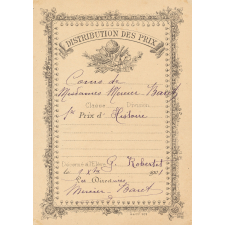 DISTRIBUTION DES PRIX
Cours de
Mesdames Munier-Baret
Classe Division
1er Prix d' Histoire
Décerné à l'Elève G. Robertet
le 1901
Les Directrices
Munier-Baret